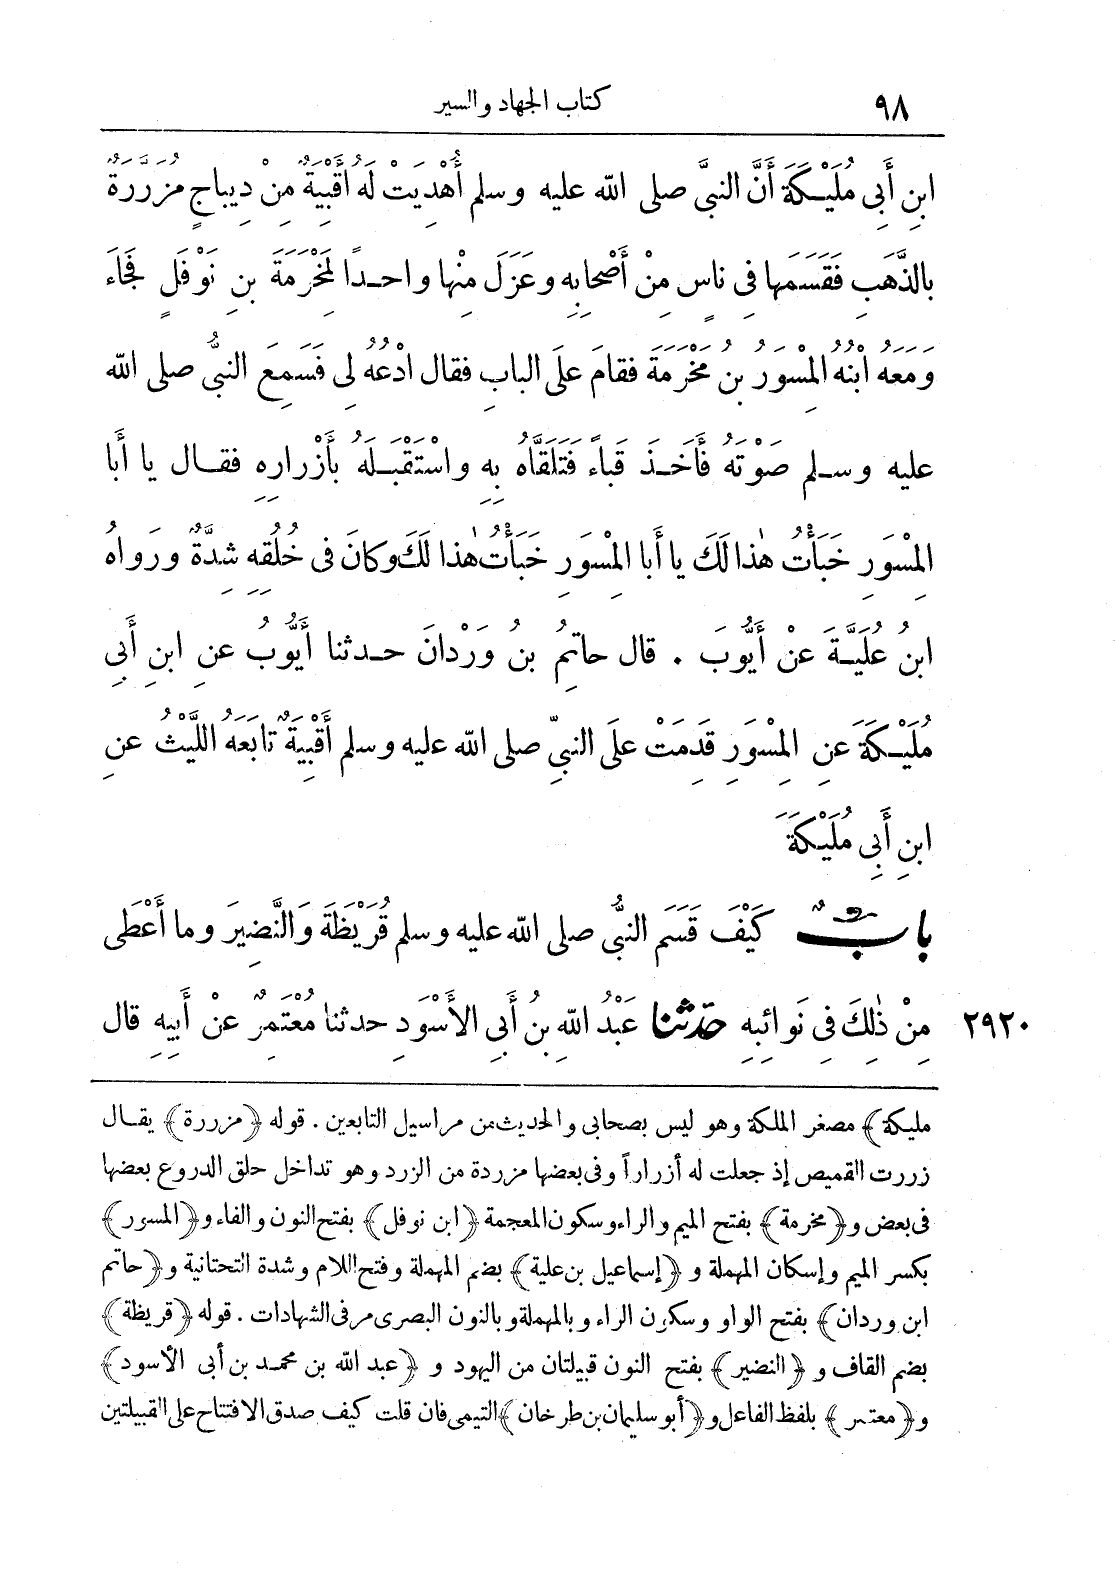 ٩٨
كتاب الجهاد والسير
ابنِ أَبِي مُلَيْكَةَ أَنَّ النبيَّ صلى الله عليه وسلم أُهْدِيَتْ لَهُ أَقْبِيَةٌ مِنْ دِيباجٍ مُزَرَّرَةٌ
بالذَّهَبِ فَقَسَمَها فى ناسٍ مِنْ أَصْحابِهِ وعَزَلَ مِنْها واحدًا لِمَخْرَمَةَ بنِ نَوْفَلٍ فَجَاءَ
وَمَعَهُ ابْنُهُ المِسْوَرُ بنُ مَخْرَمَةَ فقامَ علَى البابِ فقال ادْعُهُ لِى فَسَمِعَ النبىُّ صلى الله
عليه وسلم صَوْتَهُ فَأَخَذَ قَباءً فَتَلَقَّاهُ بِهِ واسْتَقْبَلَهُ بأَزْرارِهِ فقال يا أَبا
المِسْوَرِ خَبَأْتُ هٰذا لَكَ يا أَبا المِسْوَرِ خَبَأْتُ هٰذا لَكَ وكانَ فى خُلُقِهِ شِدَّةٌ ورَواهُ
ابنُ عُلَيَّةَ عنْ أَيُّوبَ . قال حاتِمُ بنُ وَرْدانَ حدثنا أَيُّوبُ عنِ ابنِ أَبِى
مُلَيْكَةَ عنِ المِسْوَرِ قَدِمَتْ علَى النبيِّ صلى الله عليه وسلم أَقْبِيَةٌ تابَعَهُ اللَّيْثُ عنِ
ابنِ أَبِى مُلَيْكَةَ
بابٌ كَيْفَ قَسَمَ النبىُّ صلى الله عليه وسلم قُرَيْظَةَ والنَّضِيرَ وما أَعْطَى
٢٩٢٠ مِنْ ذٰلِكَ فى نَوائِبِهِ حدّثنا عَبْدُ اللهِ بنُ أَبى الأَسْوَدِ حدثنا مُعْتَمِرٌ عنْ أَبِيهِ قال
مليكة﴾ مصغر الملكة وهو ليس بصحابى والحديث من مراسيل التابعين . قوله ﴿مزررة﴾ يقال
زررت القميص إذ جعلت له أزراراً وفى بعضها مزردة من الزرد وهو تداخل حلق الدروع بعضها
فى بعض و﴿مخرمة﴾ بفتح الميم والراء وسكون المعجمة ﴿ابن نوفل﴾ بفتح النون والفاء و﴿المسور﴾
بكسر الميم وإسكان المهملة و ﴿إسماعيل بن علية﴾ بضم المهملة وفتح اللام وشدة التحتانية و﴿حاتم
ابن وردان﴾ بفتح الواو وسكون الراء وبالمهملة وبالنون البصرى مر فى الشهادات . قوله ﴿قريظة﴾
بضم القاف و ﴿النضير﴾ بفتح النون قبيلتان من اليهود و ﴿عبد الله بن محمد بن أبى الأسود﴾
و﴿معتمر﴾ بلفظ الفاعل و﴿أبو سليمان بن طرخان﴾ التيمى فان قلت كيف صدق الافتتاح على القبيلتين